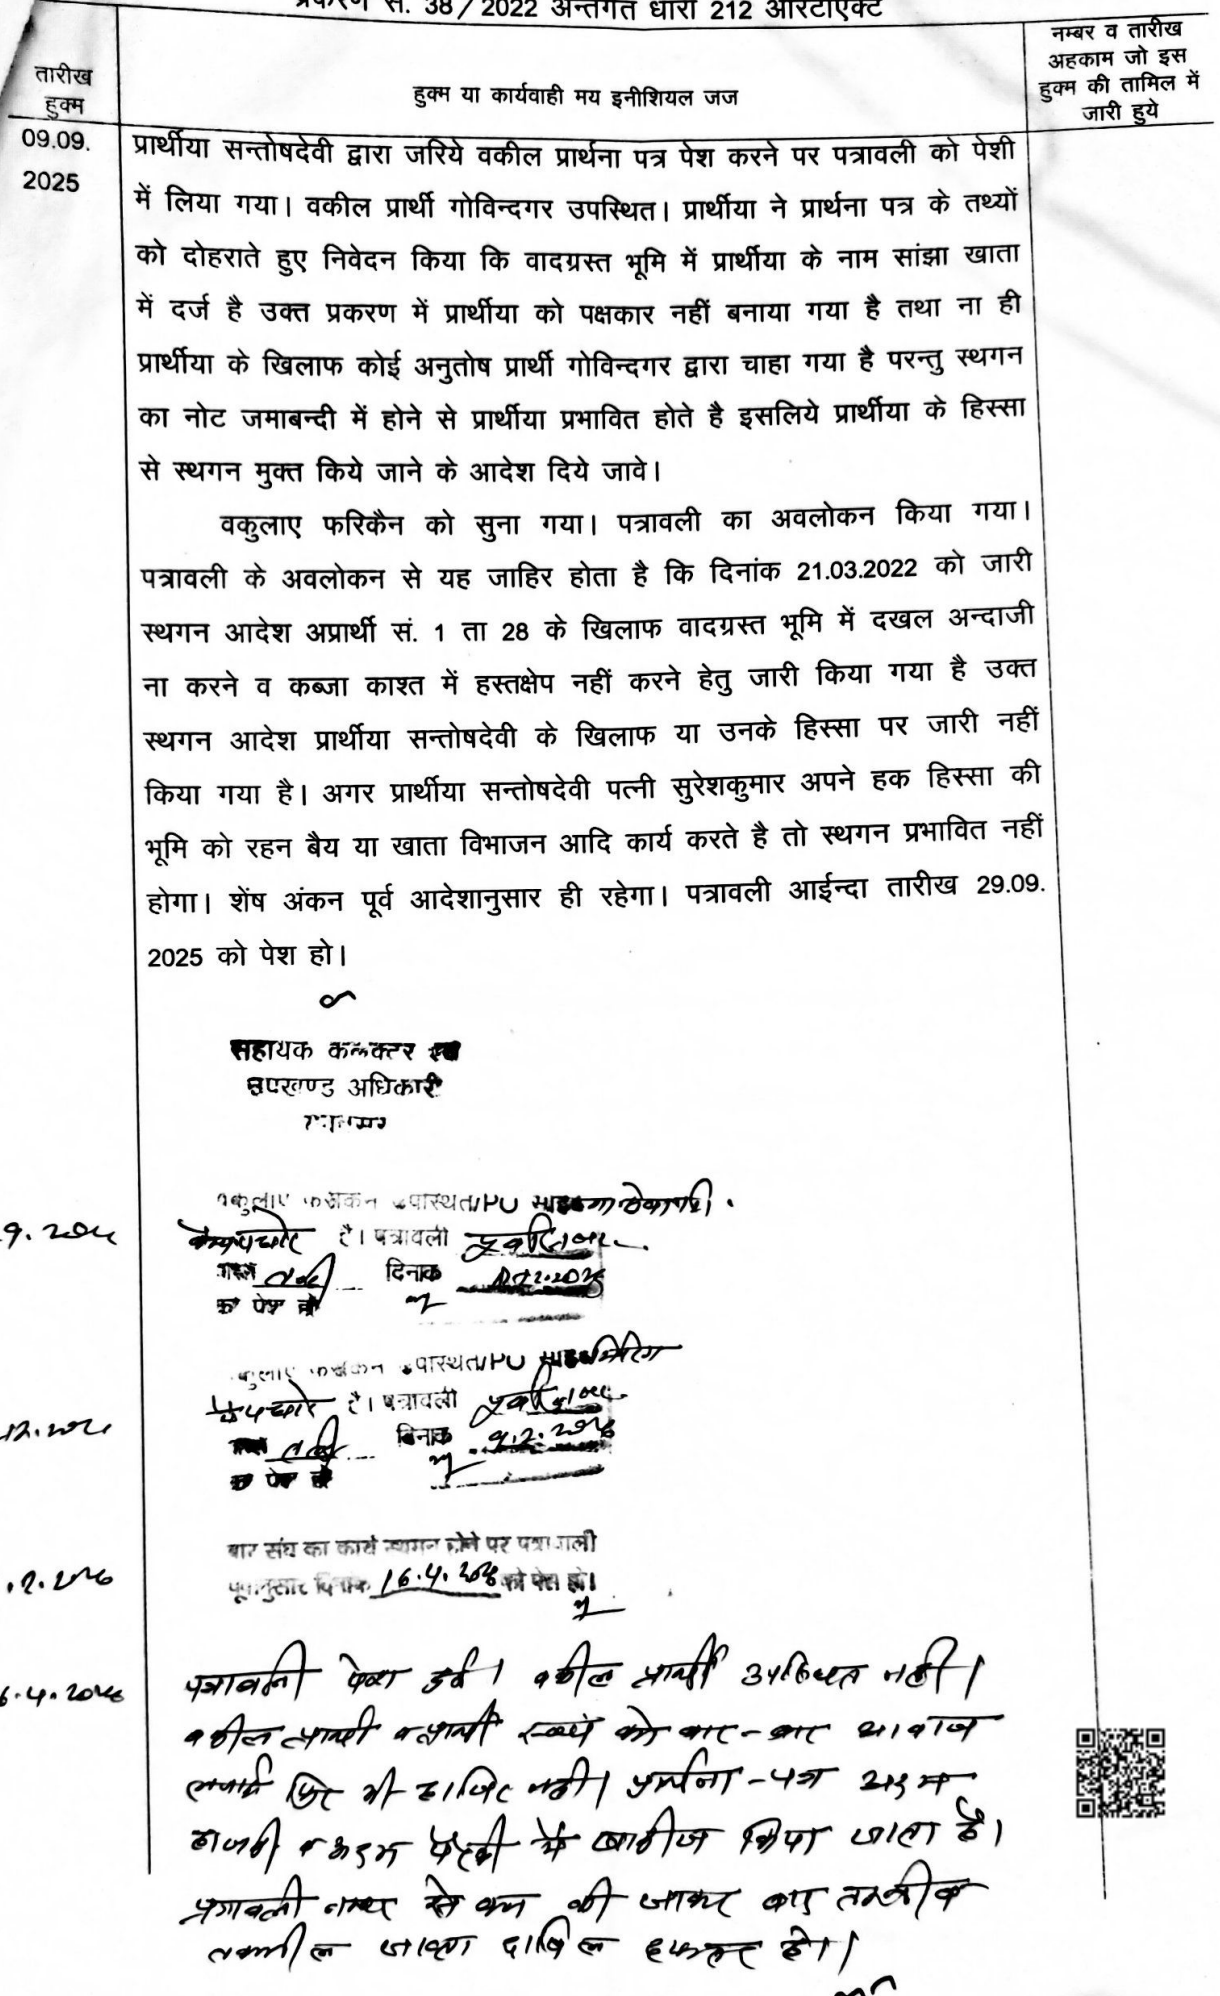 प्रकरण सं. 38/2022 अन्तर्गत धारा 212 आरटीएक्ट
तारीख
हुक्म
हुक्म या कार्यवाही मय इनीशियल जज
नम्बर व तारीख
अहकाम जो इस
हुक्म की तामिल में
जारी हुये
09.09.
2025
प्रार्थीया सन्तोषदेवी द्वारा जरिये वकील प्रार्थना पत्र पेश करने पर पत्रावली को पेशी
में लिया गया। वकील प्रार्थी गोविन्दगर उपस्थित। प्रार्थीया ने प्रार्थना पत्र के तथ्यों
को दोहराते हुए निवेदन किया कि वादग्रस्त भूमि में प्रार्थीया के नाम सांझा खाता
में दर्ज है उक्त प्रकरण में प्रार्थीया को पक्षकार नहीं बनाया गया है तथा ना ही
प्रार्थीया के खिलाफ कोई अनुतोष प्रार्थी गोविन्दगर द्वारा चाहा गया है परन्तु स्थगन
का नोट जमाबन्दी में होने से प्रार्थीया प्रभावित होते है इसलिये प्रार्थीया के हिस्सा
से स्थगन मुक्त किये जाने के आदेश दिये जावे।
वकुलाए फरिकैन को सुना गया। पत्रावली का अवलोकन किया गया।
पत्रावली के अवलोकन से यह जाहिर होता है कि दिनांक 21.03.2022 को जारी
स्थगन आदेश अप्रार्थी सं. 1 ता 28 के खिलाफ वादग्रस्त भूमि में दखल अन्दाजी
ना करने व कब्जा काश्त में हस्तक्षेप नहीं करने हेतु जारी किया गया है उक्त
स्थगन आदेश प्रार्थीया सन्तोषदेवी के खिलाफ या उनके हिस्सा पर जारी नहीं
किया गया है। अगर प्रार्थीया सन्तोषदेवी पत्नी सुरेशकुमार अपने हक हिस्सा की
भूमि को रहन बैय या खाता विभाजन आदि कार्य करते है तो स्थगन प्रभावित नहीं
होगा। शेंष अंकन पूर्व आदेशानुसार ही रहेगा। पत्रावली आईन्दा तारीख 29.09.
2025 को पेश हो।
सहायक कलक्टर एवं
उपखण्ड अधिकारी
वकुलाए फरीकैन उपस्थित/PO
है। पत्रावली
दिनांक
को पेश हो
वकुलाए फरीकैन उपस्थित/PO
है। पत्रावली
दिनांक 9.2.2026
को पेश हो
बार संघ का कार्य स्थगन होने पर पत्रावली
पूर्वानुसार दिनांक 16.4.2026 को पेश हो।
6.4.2026
पत्रावली पेश हुई। वकील प्रार्थी उपस्थित नहीं।
वकील प्रार्थी व प्रार्थी स्वयं को बार-बार आवाज
लगाई फिर भी हाजिर नहीं। प्रार्थना-पत्र अदम
हाजरी व अदम पैरवी में खारीज किया जाता है।
पत्रावली नम्बर से कम की जाकर बाद
तकमील जाब्ता दाखिल दफ्तर हो।